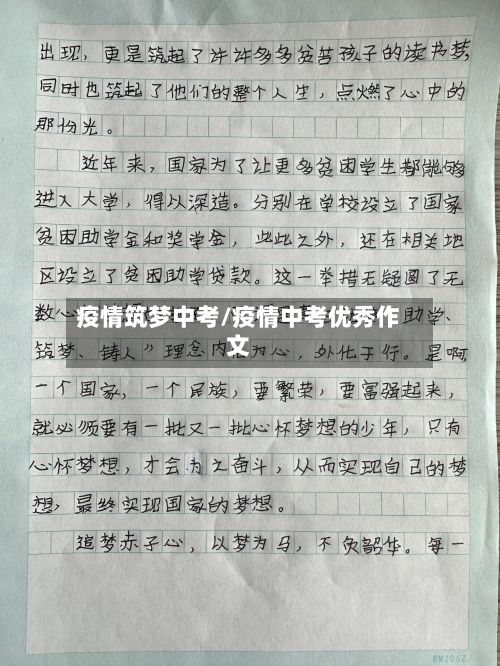 出现，更是筑起了许许多多贫苦孩子的读书梦，
同时也筑起了他们的整个人生，点燃了心中的
那份光。
近年来，国家为了让更多贫困学生都能够
进入大学，得以深造。分别在学校设立了国家
贫困助学金和奖学金，此此之外，还在相关地
区设立了贫困助学贷款。这一举措无疑圆了无
数心
疫情筑梦中考/疫情中考优秀作
文
助学、
筑梦、铸人”理念内 为心，外化于行。是啊
一个国家，一个民族，要繁荣，要富强起来，
就必须要有一批又一批心怀梦想的少年，只有
心怀梦想，才会为之奋斗，从而实现自己的梦
想，最终实现国家的梦想。
追梦赤子心，以梦为马，不负韶华。每一
BM2062